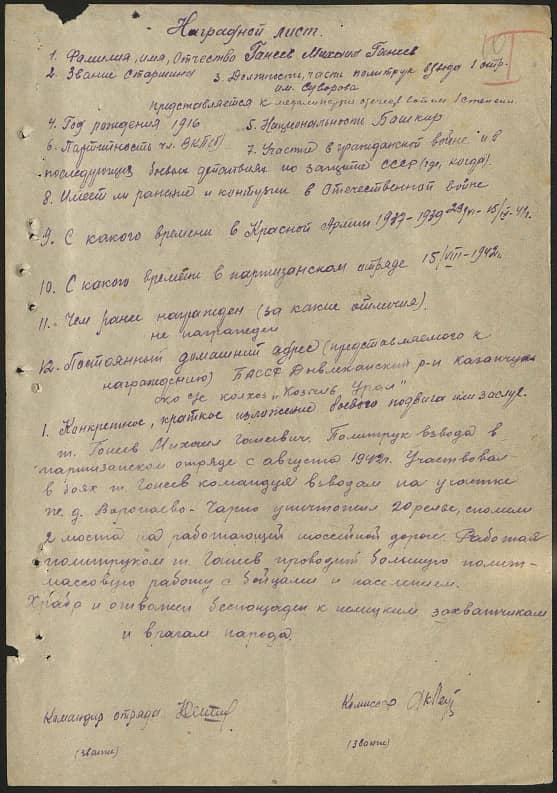 Наградной лист.
1. Фамилия, имя, Отчество Ганеев Михаил Ганеев
2. Звание Старшина 3. Должность, часть политрук взвода 1 отр.
им. Суворова
представляется к медали партизан отечест войны 1 степени.
4. Год рождения 1916 5. Национальность Башкир
6. Партийность чл. ВКП(б) 7. Участие в гражданской войне и в
последующих боевых действиях по защите СССР (где, когда).
8. Имеет ли ранения и контузии в Отечественной войне
9. С какого времени в Красной Армии 1937-1939
10. С какого времени в партизанском отряде 15/VIII-1942г.
11. Чем ранее награжден (за какие отличия).
не награжден
12. Постоянный домашний адрес (представляемого к
награждению) БАССР р-н
колхоз "Урал"
1. Конкретное, краткое изложение боевого подвига или заслуг.
т. Ганеев Михаил Ганеевич. Политрук взвода в
партизанском отряде с августа 1942г. Участвовал
в боях т. Ганеев командуя взводам на участке
ж.д. Воропаево-Чарно уничтожил 20 рельс, спомли
2 моста на работающей шоссейной дороге. Работая
политруком т. Ганеев проводит большую полит-
массовую работу с бойцами и населением.
Храбр и отважен беспощаден к немецким захватчикам
и врагам народа.
Командир отряда Комиссар
(звание) (звание)